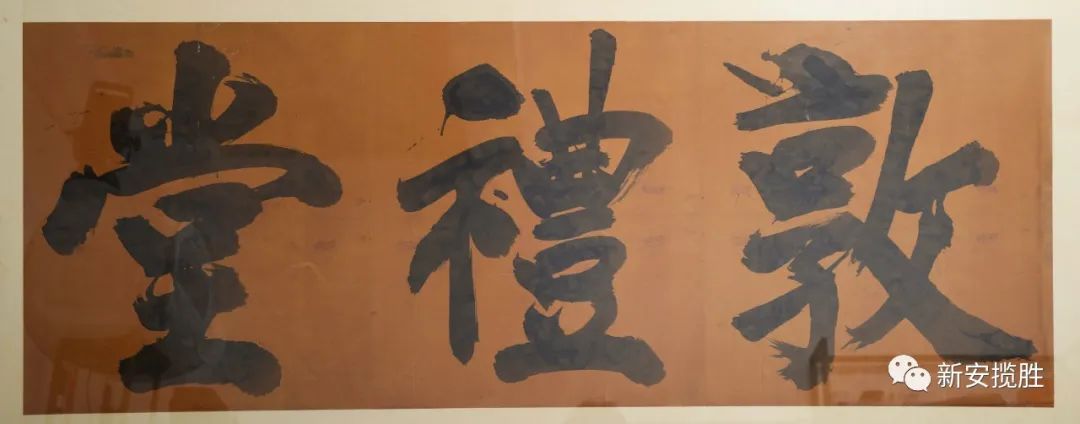 敦禮堂
新安揽胜